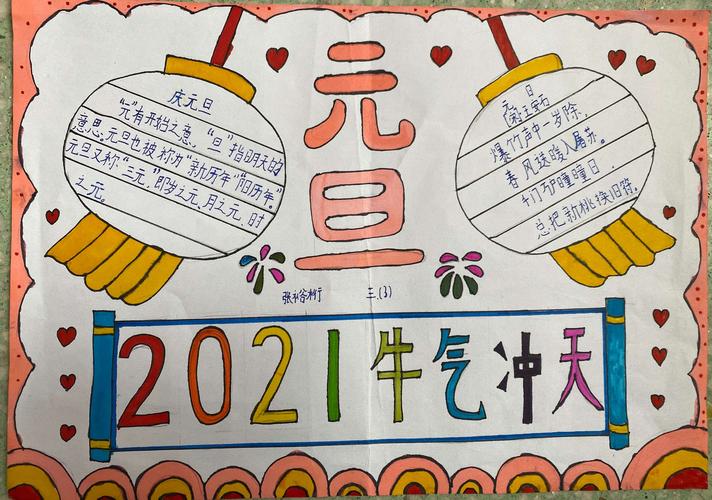 元
旦
庆元旦
“元”有开始之意，“旦”指明天的
意思。元旦也被称为“新历年”“阳历年”。
元旦又称“三元”，即岁之元、月之元、时
之元。
元 日
[宋]王安石
爆竹声中一岁除，
春风送暖入屠苏。
千门万户曈曈日，
总把新桃换旧符。
张
三.(3)
2021牛气冲天